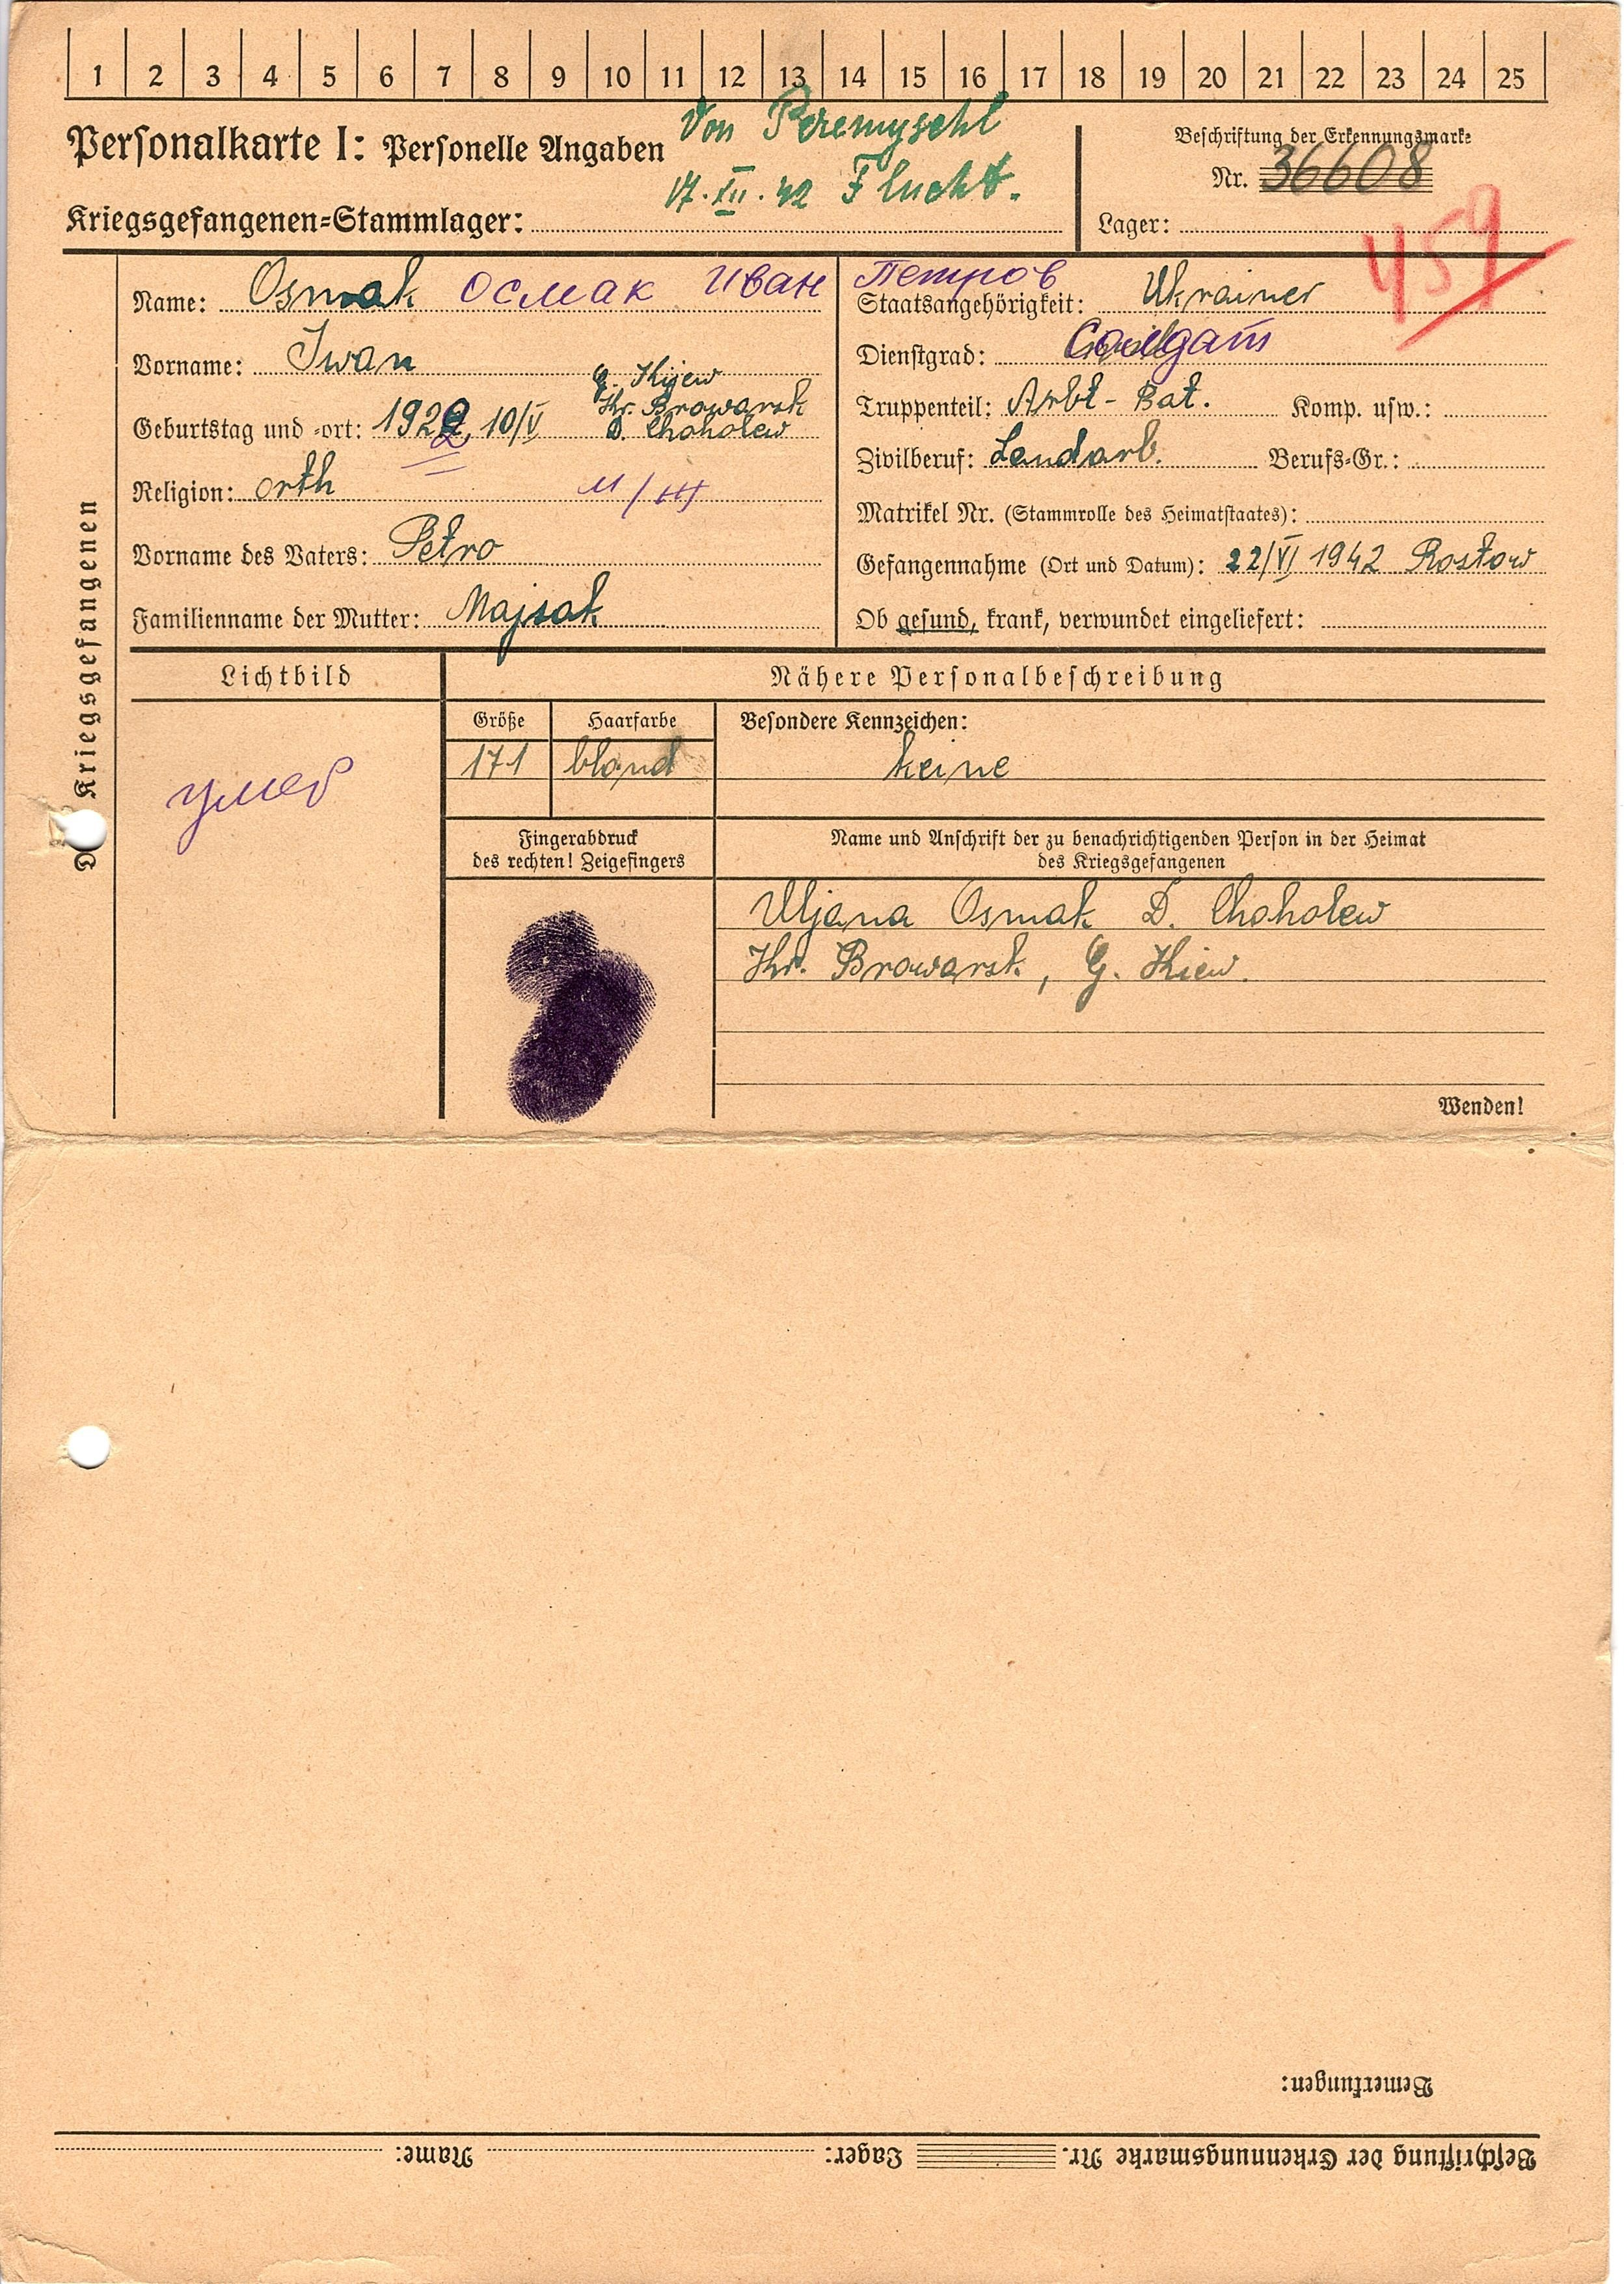 1 2 3 4 5 6 7 8 9 10 11 12 13 14 15 16 17 18 19 20 21 22 23 24 25
Von Peremyschl
Personalkarte I: Personelle Angaben
17.XII.42 Flucht.
Kriegsgefangenen-Stammlager:
Beschriftung der Erkennungsmarke
Nr. 36608
Lager:
459
Name: Osmak Осмак Иван Петров
Vorname: Iwan
Geburtstag und -ort: 1922, 10/V
2
G. Kijew
Kr. Browarsk
D. Choholew
Religion: orth
Vorname des Vaters: Petro
Familienname der Mutter: Majsak
Staatsangehörigkeit: Ukrainer
Dienstgrad: Солдат
Truppenteil: Arbt-Bat. Komp. usw.:
Zivilberuf: Landarb. Berufs-Gr.:
Matrikel Nr. (Stammrolle des Heimatstaates):
Gefangennahme (Ort und Datum): 22/VI 1942 Rostow
Ob gesund, krank, verwundet eingeliefert:
Kriegsgefangenen
Lichtbild
умер
Nähere Personalbeschreibung
Größe Haarfarbe Besondere Kennzeichen:
171 blond keine
Fingerabdruck
des rechten! Zeigefingers
Name und Anschrift der zu benachrichtigenden Person in der Heimat
des Kriegsgefangenen
Uljana Osmak D. Choholew
Kr. Browarsk, G. Kiew.
Wenden!
Bemerkungen:
Beschriftung der Erkennungsmarke Nr. Lager: Name: